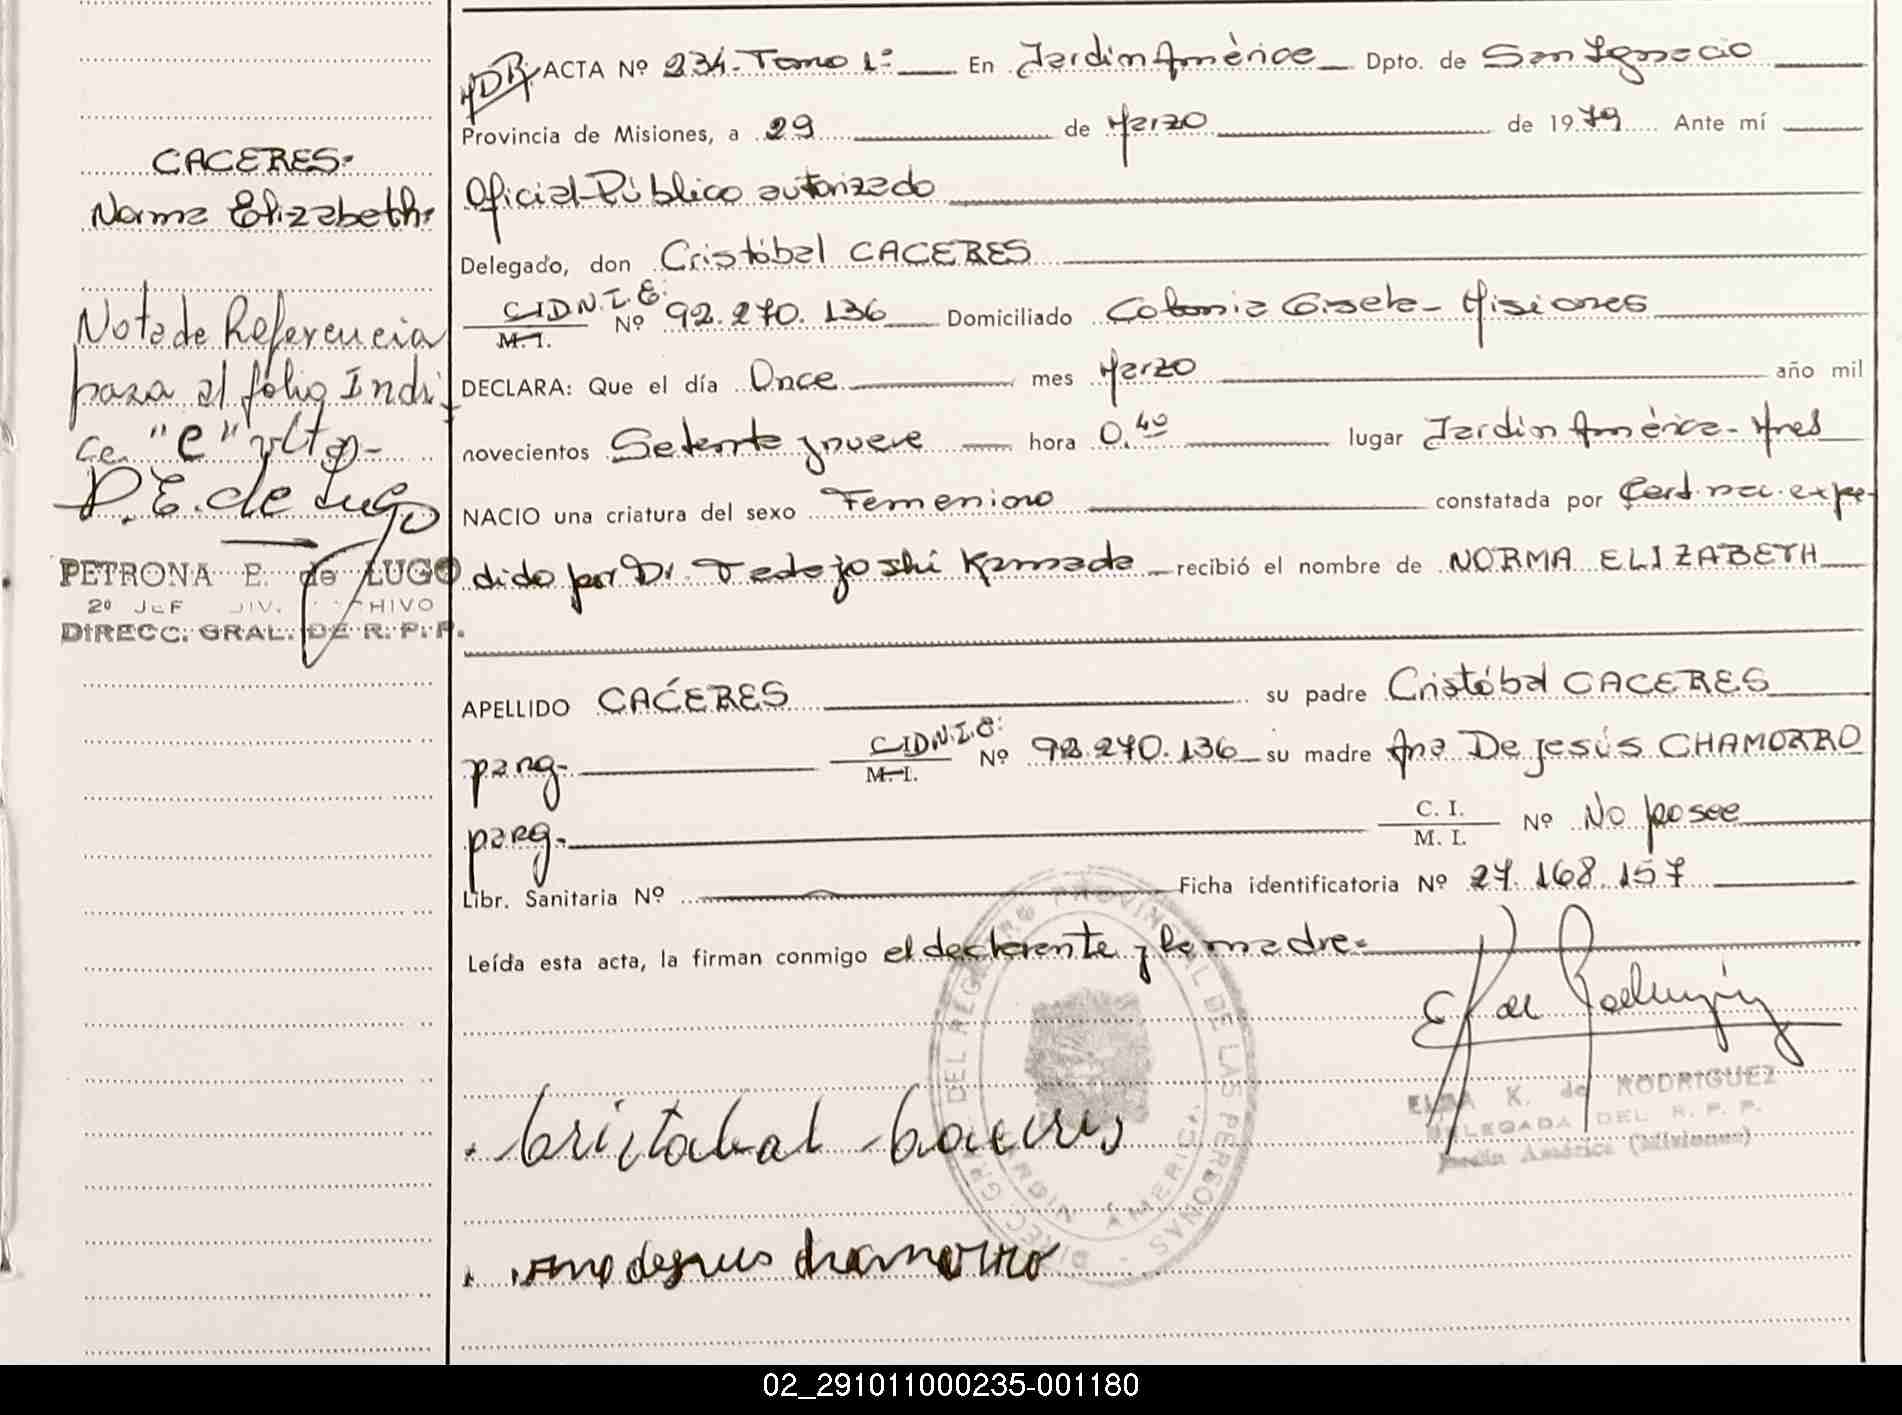 ACTA Nº 234. Tomo 1º En Jardin Amèrica Dpto. de San Ignacio
Provincia de Misiones, a 29 de Marzo de 1979 Ante mí
Oficial Público autorizado
Delegado, don Cristóbal CACERES
C.I.D.N.I.E. M.I. Nº 92.270.136 Domiciliado Colonia Gisela - Misiones
DECLARA: Que el día Once mes Marzo año mil
novecientos Setenta y nueve hora 0.40 lugar Jardin América - Mnes
NACIO una criatura del sexo Femenino constatada por Cert. nac. expe-
dido por Dr. Tadajoshi Kamada recibió el nombre de NORMA ELIZABETH
APELLIDO CACERES su padre Cristóbal CACERES
parg. C.I.D.N.I.E. M.I. Nº 92.270.136 su madre Ana De Jesús CHAMORRO
parg. C. I. M. I. Nº No posee
Libr. Sanitaria Nº Ficha identificatoria Nº 27.168.157
Leída esta acta, la firman conmigo el declarente y la madre.
Cristobal Caceres
Ana dejesus chamorro
E K de Rodriguez
ELBA K. de RODRIGUEZ
DELEGADA DEL R. P. P.
Jardín América (Misiones)
DIRECC. GRAL. DEL REGISTRO PROVINCIAL DE LAS PERSONAS
JARDIN AMERICA
CACERES.
Norma Elizabeth.
Nota de Referencia
pasa al fólio Indi
ce "C" vlta-
P.E. de Lugo
PETRONA E. de LUGO
2º JEF DIV. ARCHIVO
DIRECC. GRAL. DE R. P. P.
02_291011000235-001180